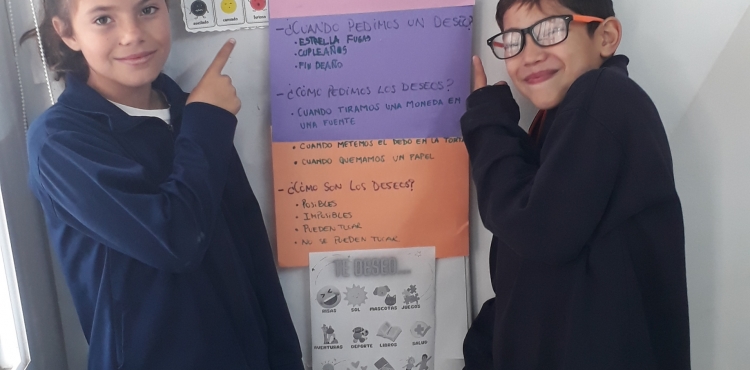 -¿CUANDO PEDIMOS UN DESEO?
• ESTRELLA FUGAS
• CUPLEAÑOS
• FIN DE AÑO
-¿CÓMO PEDIMOS LOS DESEOS?
• CUANDO TIRAMOS UNA MONEDA EN
UNA FUENTE
• CUANDO METEMOS EL DEDO EN LA TORTA
• CUANDO QUEMAMOS UN PAPEL
-¿CÓMO SON LOS DESEOS?
• POSIBLES
• IMPOSIBLES
• PUEDEN TOCAR
• NO SE PUEDEN TOCAR
TE DESEO...
RISAS SOL MASCOTAS JUEGOS
AVENTURAS DEPORTE LIBROS SALUD